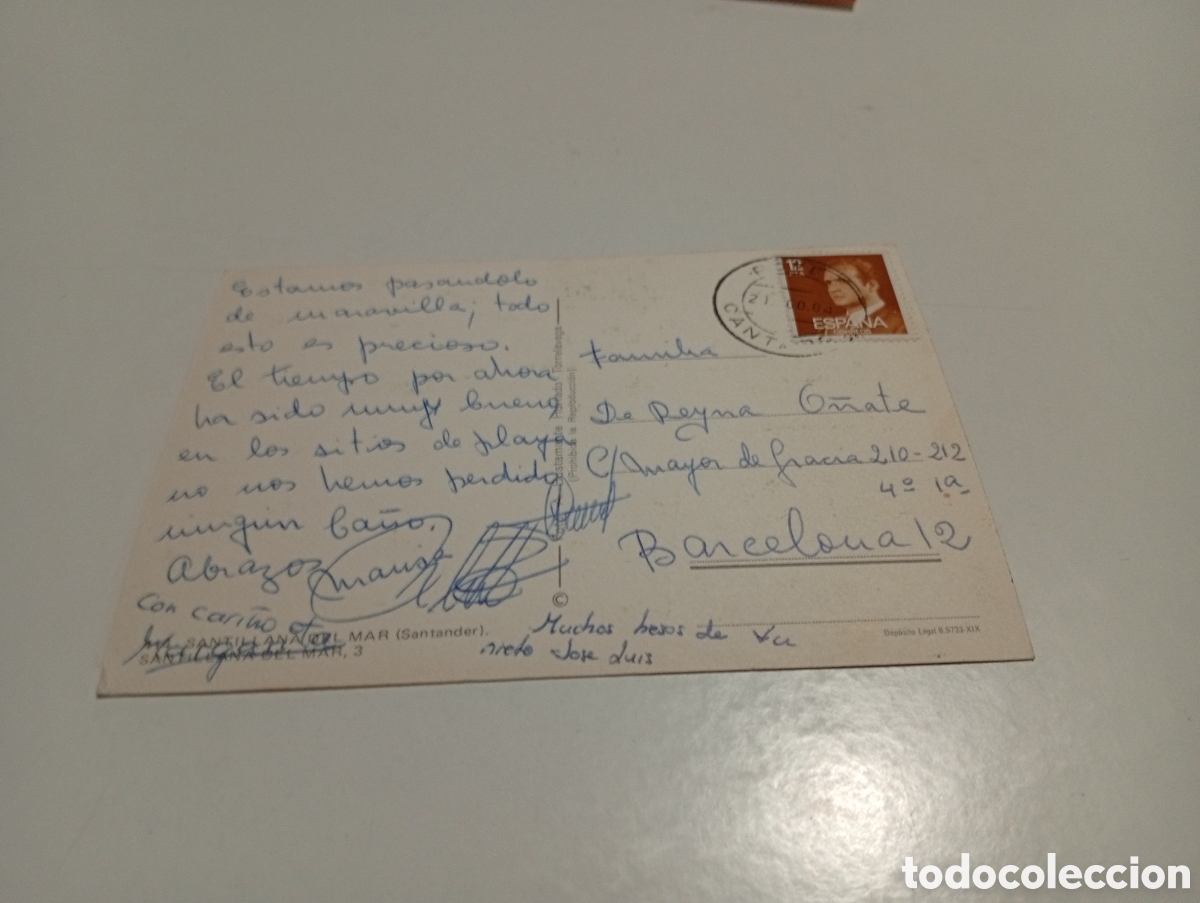 Estamos pasandolo
de maravilla, todo
esto es precioso.
El tiempo por ahora
ha sido muy bueno
en los sitios de playa
no nos hemos perdido
ningún baño.
Abrazos
Con cariño
SANTILLANA DEL MAR (Santander).
SANTILLANA DEL MAR, 3
Muchos besos de vu
nieto Jose Luis
©
(Prohibida la Reproducción)
12
PTA
ESPAÑA
CANTA
21
Familia
De Reyna Oñate
C/ Mayor de Gracia 210-212
4º 1ª
Barcelona 12
Depósito Legal B.5733-XIX
todocoleccion